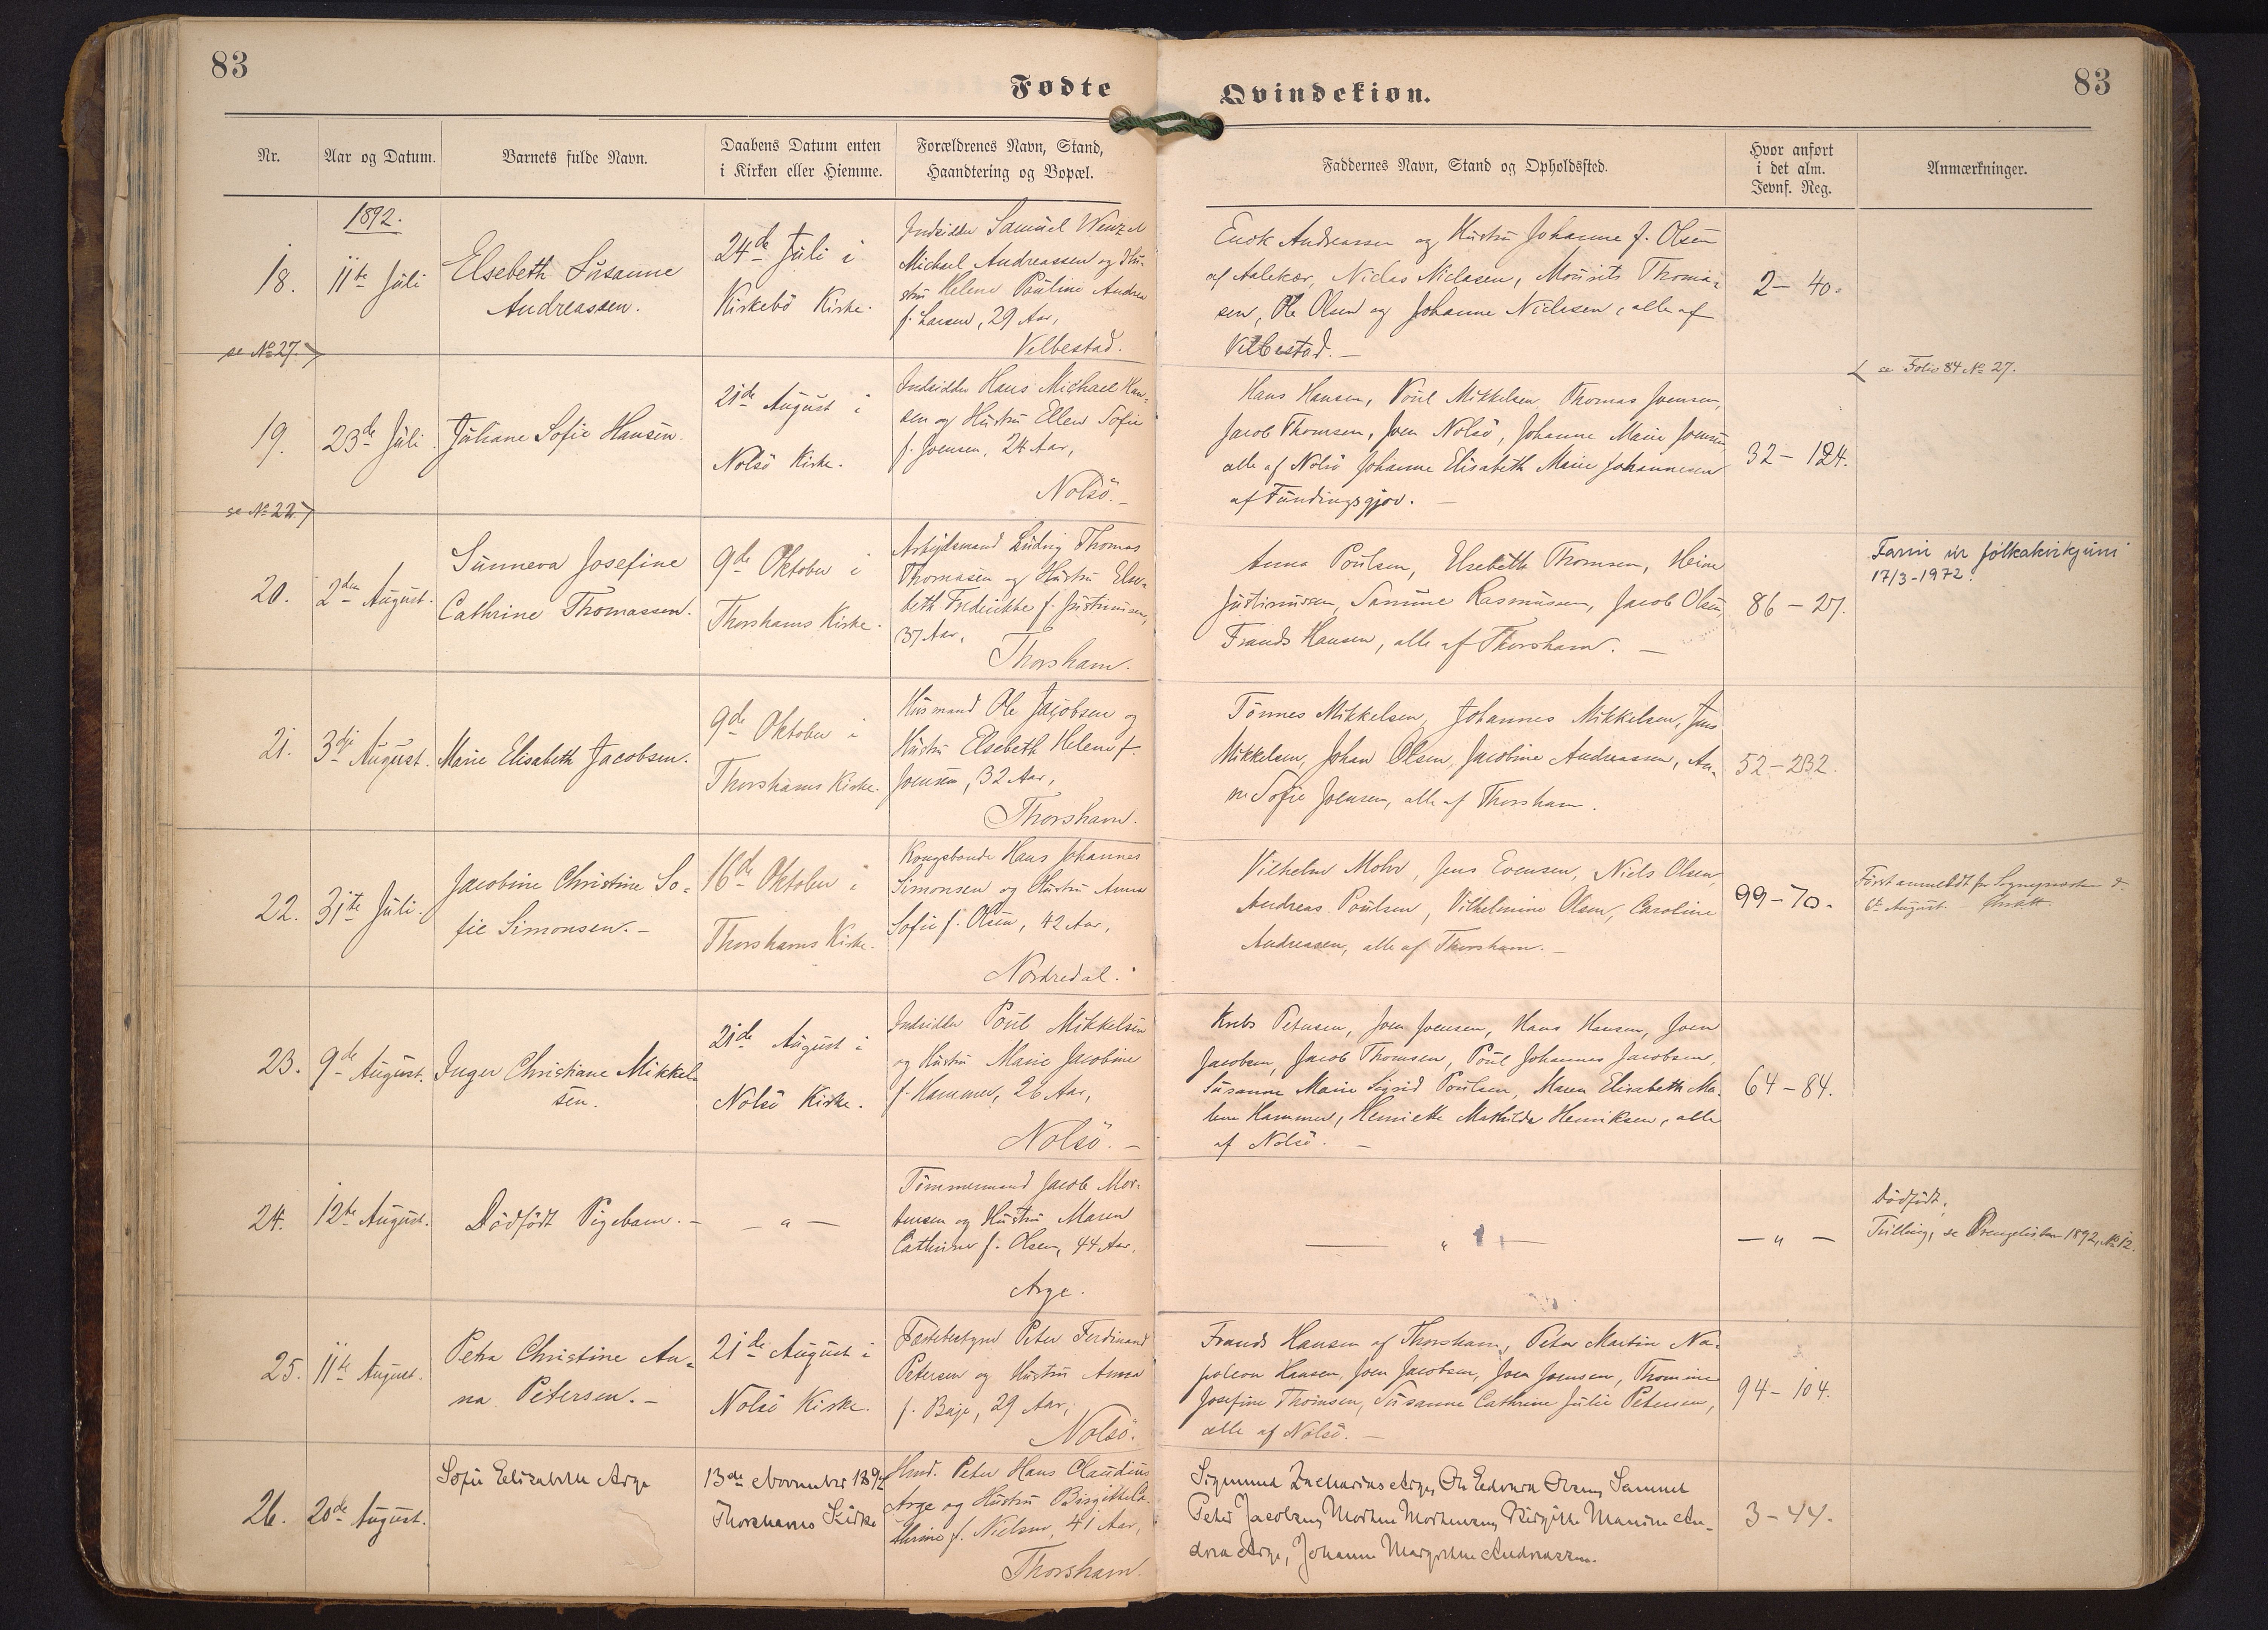 83
83
Fødte
Qvindekiøn.
Nr.
Aar og Datum.
Barnets fulde Navn.
Daabens Datum enten
i Kirken eller Hiemme.
Forældrenes Navn, Stand,
Haandtering og Bopæl.
Faddernes Navn, Stand og Opholdssted.
Hvor anført
i det alm.
Jevnf. Reg.
Anmærkninger.
1892.
18.
11te Juli
Elsebeth Susanne
Andreassen.
24de Juli i
Kirkebö Kirke.
Indsidder Samuel Wenzel
Michael Andreassen og Hu-
stru Helene Pauline Andrea
f. Larsen, 29 Aar,
Velbestad.
Enok Andreassen og Hustru Johanne f. Olsen
af Aalekær, Niclas Niclasen, Mourits Thoma-
sen, Ole Olsen og Johanne Niclasen, alle af
Velbestad. —
2 — 40.
se № 27.
se Folio 84 № 27.
19.
23de Juli
Juliane Sofie Hansen.
21de August i
Nolsö Kirke.
Indsidder Hans Michael Han-
sen og Hustru Ellen Sofie
f. Joensen, 24 Aar,
Nolsö. —
Hans Hansen, Poul Mikkelsen, Thomas Joensen,
Jacob Thomsen, Joen Nolsö, Johanne Marie Joensen,
alle af Nolsö Johanne Elisabeth Marie Johannesen
af Fundingsgjov. —
32 — 124.
se № 22.
20.
2den August.
Sunneva Josefine
Cathrine Thomassen.
9de Oktober i
Thorshavns Kirke.
Arbejdsmand Ludvig Thomas
Thomasen og Hustru Else-
beth Fredrikke f. Justinussen,
37 Aar,
Thorshavn.
Anna Poulsen, Elsebeth Thomsen, Heine
Justinussen, Sanne Rasmussen, Jacob Olsen,
Frands Hansen, alle af Thorshavn. —
86 — 27.
Farin úr fólkakirkjuni
17/3-1972.
21.
3dje August.
Marie Elisabeth Jacobsen.
9de Oktober i
Thorshavns Kirke.
Husmand Ole Jacobsen og
Hustru Elsebeth Helene f.
Joensen, 32 Aar,
Thorshavn.
Tönnes Mikkelsen, Johannes Mikkelsen, Jens
Mikkelsen, Johan Olsen, Jacobine Andreassen, An-
ne Sofie Joensen, alle af Thorshavn.
52 — 232.
22.
31te Juli.
Jacobine Christine So-
fie Simonsen. —
16de Oktober i
Thorshavns Kirke.
Kongsbonde Hans Johannes
Simonsen og Hustru Anna
Sofie f. Olsen, 42 Aar,
Nordredal.
Vilhelm Mohr, Jens Evensen, Niels Olsen,
Andreas Poulsen, Vilhelmine Olsen, Caroline
Andreasen, alle af Thorshavn. —
99 — 70.
Först anmeldt for Sognepræsten d.
6te August. —
23.
9de August.
Inger Christiane Mikkel-
sen.
21de August i
Nolsö Kirke.
Indsidder Poul Mikkelsen
og Hustru Marie Jacobine
f. Hammer, 26 Aar,
Nolsö. —
Krebs Petersen, Joen Joensen, Hans Hansen, Joen
Jacobsen, Jacob Thomsen, Poul Johannes Jacobsen,
Susanne Marie Sigrid Poulsen, Maren Elisabeth Ma-
lene Hammer, Henriette Mathilde Henriksen, alle
af Nolsö. —
64 — 84.
24.
12te August.
Dödfödt Pigebarn. —
— " —
Tömmermand Jacob Mor-
tensen og Hustru Maren
Cathrine f. Olsen, 44 Aar.
Arge.
— " —
— " —
Dödfödt,
Tvilling, se Drengelisten 1892, № 12.
25.
11te August.
Petra Christine An-
na Petersen. —
21de August i
Nolsö Kirke.
Fæstebestyrer Peter Ferdinand
Petersen og Hustru Anna
f. Baje, 29 Aar,
Nolsö.
Frands Hansen af Thorshavn, Peter Martin Na-
poleon Hansen, Joen Jacobsen, Joen Joensen, Thomine
Josefine Thomsen, Susanne Cathrine Julie Petersen,
alle af Nolsö. —
94 — 104.
26.
20de August.
Sofie Elisabeth Arge
13de November 1892
Thorshavns Kirke
Hmd. Peter Hans Claudius
Arge og Hustru Birgithe Ca-
thrine f. Nielsen, 41 Aar,
Thorshavn.
Sigmund Zacharias Arge, Ole Edvard Olsen, Samuel
Peter Jacobsen, Morten Mortensen, Birgitte Marine An-
drea Arge, Johanne Margrethe Andreassen.
3 — 44.